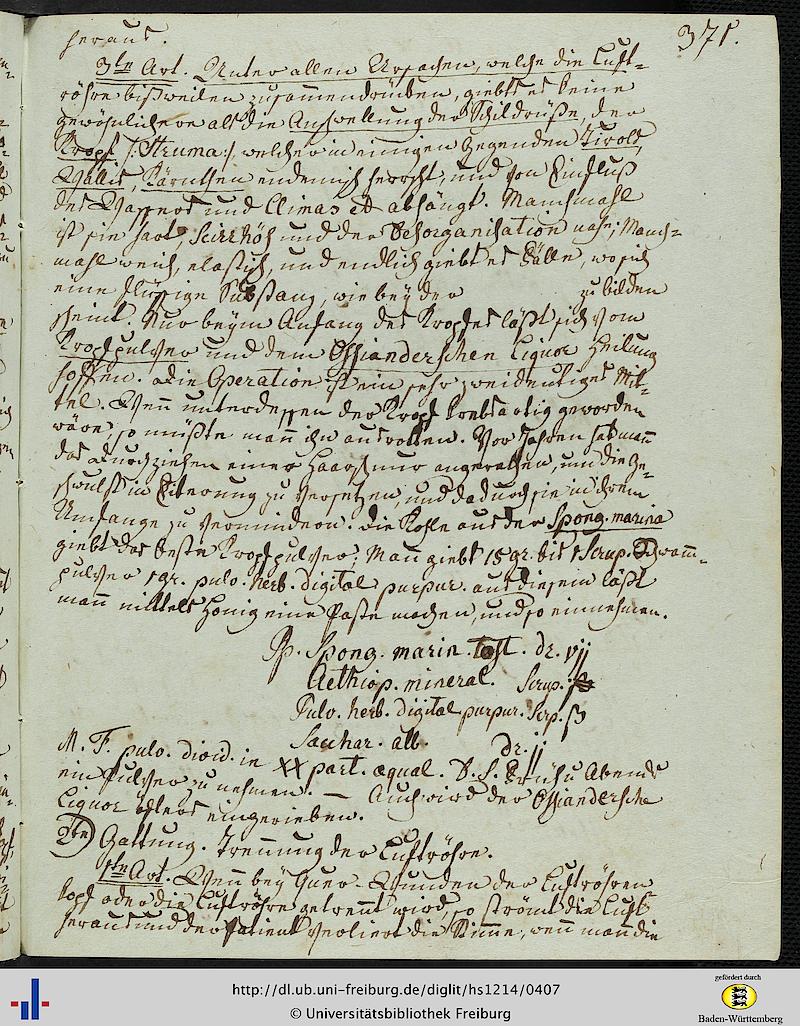 371.
heraus.
3te Art. Unter allen Ursachen, welche die Luft-
röhre bißweilen zusammendrüken, giebt es keine
gewöhnlichere als die Anschwellung der Schildrüße, der
Kropf /: Struma :/, welcher in einigen Gegenden Tirols,
Wallis, Kärnthen endemisch herrscht, und von Einfluß
des Wassers und Climas et abhängt. Manchmahl
ist sie hart, Scirrhös und der Desorganisation nahe; Manch-
mahl weich, elastisch, und endlich giebt es Fälle, wo sich
eine flüssige Substanz, wie bey der zu bilden
scheint. Nur beym Anfang des Kropfes läßt sich vom
Kropfpulver und dem Ossianderschen Liquor Heilung
hoffen. Die Operation ist ein sehr zweideutiges Mit-
tel. Wenn unterdessen der Kropf krebsartig geworden
wäre, so müßte man ihn ausrotten. Vor Jahren hat man
das Durchziehen einer Haarschnur angerathen, um die Ge-
schwulst in Eiterung zu versetzen, und dadurch sie in ihrem
Umfange zu vermindern. Die Kohle aus der Spong. marina
giebt das beste Kropfpulver; Man giebt 15 gr. bis 1 Scrup. Schwamm-
pulver 1 gr. pulv. herb. digital purpur. aus diesem läßt
man mittels Honig eine Paste machen, und so einnehmen.
Rp. Spong. marin. tost. dr. vij
Aethiop. mineral. Scrup.
Pulv. herb. digital purpur. Scrp. ß
Sacchar. alb. Dr. ij
M. F. pulv. divid. in XX part. aequal. D. S. Früh u Abends
ein Pulver zu nehmen. — Auch wird der Ossiandersche
Liquor öfters eingerieben.
2te) Gattung. Trennung der Luftröhre.
1te Art. Wenn bey Quer-Wunden der Luftröhren
kopf oder die Luftröhre getrennt wird, so strömt die Luft
heraus und der Patient verliert die Stimme, wenn man die
http://dl.ub.uni-freiburg.de/diglit/hs1214/0407
© Universitätsbibliothek Freiburg
gefördert durch
Baden-Württemberg